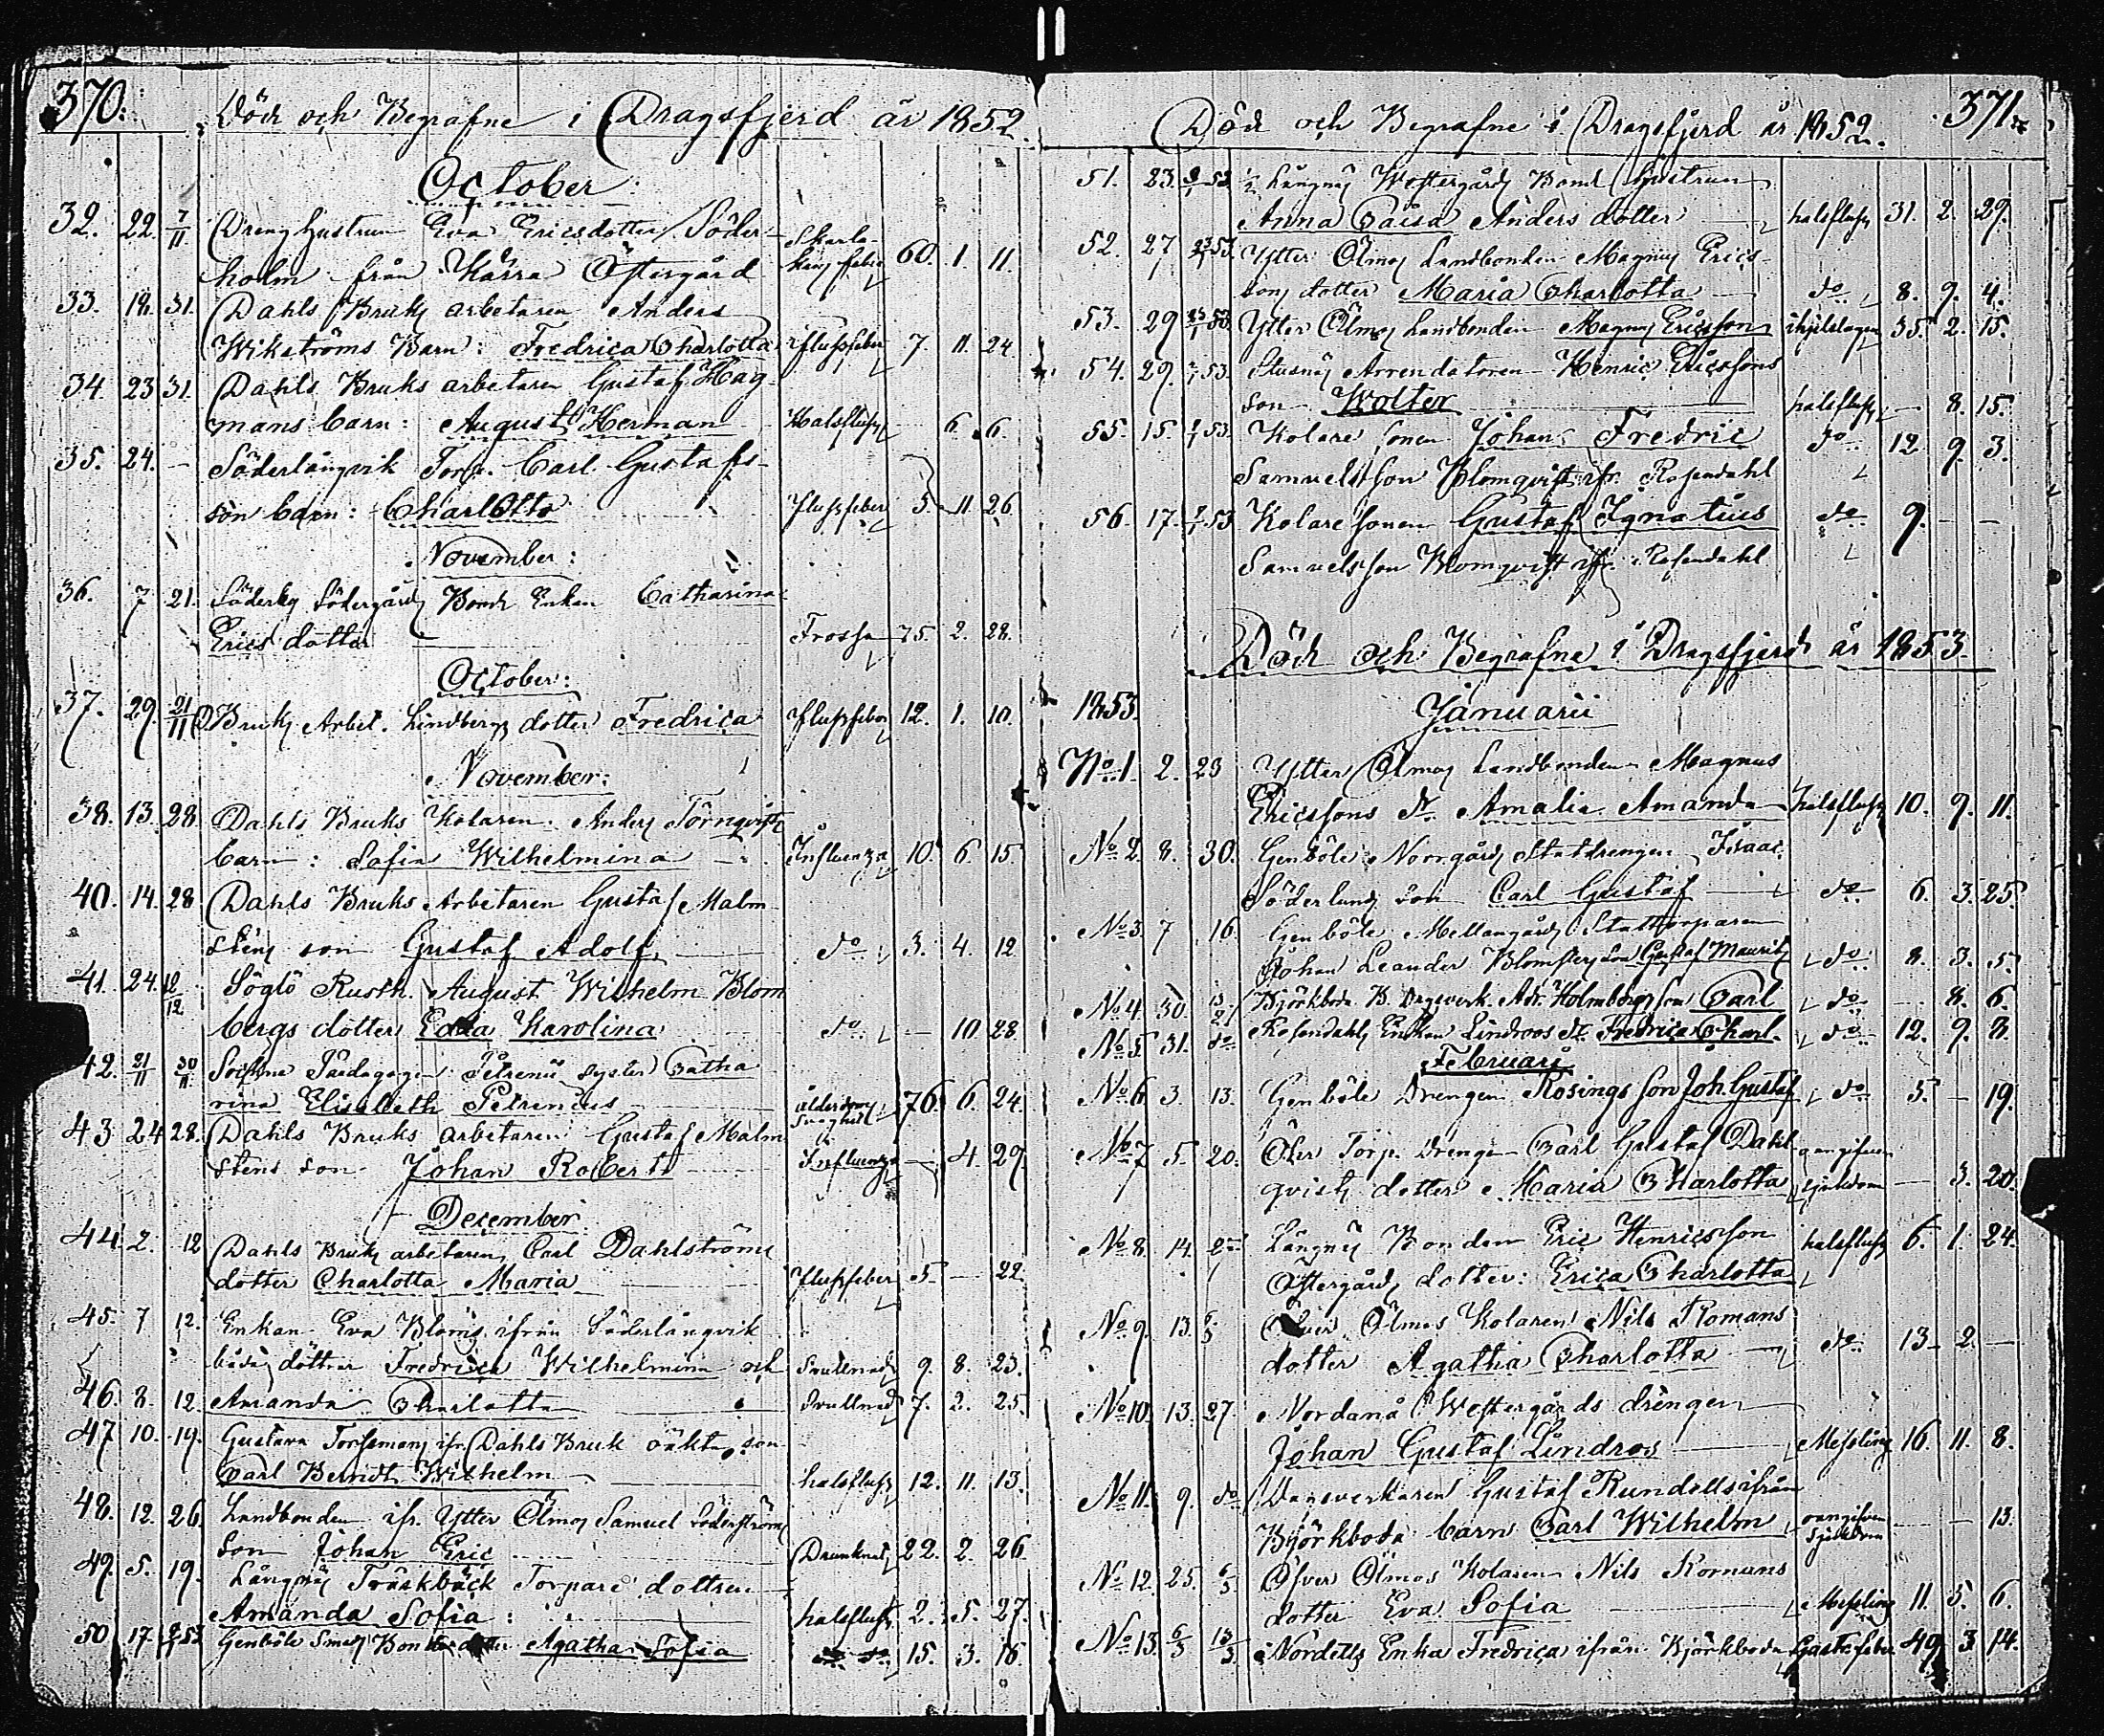 370.
Död och Begrafne i Dragsfjerd år 1852.
October:
32. 22. 7/11 Dreng hustrun Eva Ericsdotter Söder-
holm från Kärra Östergård 60. 1. 11.
33. 18. 31. Dahls Bruks arbetaren Anders
Wikströms Barn: Fredrica Charlotta Flussfeber 7. 11. 24
34. 23 31. Dahls Bruks arbetaren Gustaf Hag-
mans barn: August Herman Halsfluss — 6. 6.
35. 24. — Söderlångvik Torp. Carl Gustafs-
son barn: Charlotta Flussfeber 5. 11 26
November:
36. 7 21. Söderby Södergårds Bonde Enkan Catharina
Ericsdotter Frossa 75. 2. 28.
October:
37. 29. 21/11 D Bruks Arbet. Lindbergs dotter Fredrica Flussfeber 12. 1. 10.
November:
38. 13. 28 Dahls Bruks Kolaren Anders Törnqvists
barn: Sofia Wilhelmina Influenza 10. 6. 15
40. 14. 28 Dahls Bruks Arbetaren Gustaf Malm
stens son Gustaf Adolf do 3. 4. 12
41. 24. 12/12 Söglö Rusth. August Wilhelm Blom
bergs dotter Edla Karolina do — 10 28.
42. 21/11 30/11 Pædagogen Petrenii syster Catha
rina Elisabeth Petrenius ålderdoms svaghet 76. 6. 24.
43 24 28. Dahls Bruks arbetaren Gustaf Malm
stens son Johan Robert Influenza — 4. 29.
December
44. 2. 12 Dahls Bruks arbetaren Carl Dahlströms
dotter Charlotta Maria Flussfeber 5 — 22
45. 7 12. Enkan Eva Bloms ifrån Söderlångvik
båda döttrar Fredrica Wilhelmina och Svullnad 9. 8. 23.
46. 8. 12. Amanda Charlotta Svullnad 7. 2. 25.
47 10. 19. Gustava Forssmans ifr. Dahls Bruk oäkta son
Carl Berndt Wilhelm halsfluss 12. 11. 13.
48. 12. 26. Landbonden ifr. Ytter Ölmos Samuel Söderströms
son Johan Eric Drunknad 22. 2. 26.
49. 5. 19. Långnäs Träskbäck Torpare dottren
Amanda Sofia: halsfluss 2. 5. 27.
50 17. 2/1 53 Genböle Smeds dotter Agatha Sofia do 15. 3. 16
371.
Död och Begrafne i Dragsfjerd år 1852.
51. 23. 53. Långnäs Westergårds Bond hustrun
Anna Caisa Anders dotter halsfluss 31. 2. 29.
52. 27 53. Ytter Ölmos Landbonden Magnus Erics-
sons dotter Maria Charlotta do 8. 9. 4.
53. 29 53. Ytter Ölmos Landbonden Magnus Ericsson ihjelslagen 35. 2. 15.
54. 29. 53. Stusnäs Arrendatoren Henric Ericssons
son Wolter halsfluss — 8. 15.
55. 15. 53. Kolare sonen Johan Fredric do 12 9. 3.
Samuelsson Blomqvist ifr. Rosendahl
56. 17. 53 Kolare sonen Gustaf Ignatius do 9. — —
Samuelsson Blomqvist ifr. Rosendahl
Död och Begrafne i Dragsfjerd år 1853.
1853. Januarii
No 1. 2. 23 Ytter Ölmos Landbonden Magnus
Ericssons dr. Amalia Amanda halsfluss 10. 9. 11.
No 2. 8. 30. Genböle Norrgårds Statdrengen Isaac
Söderlunds son Carl Gustaf do 6. 3. 25.
No 3. 7 16. Genböle Mellangårds Stattorparen
Johan Leander son Gustaf Mauritz do 8. 3. 5.
No 4. 30. 13/2 Björkboda B. Dagsverk. Adr. Holmbergs son Carl do — 8. 6.
No 5. 31. do Rosendahls Enkan Lindroos dr. Fredrica Charl. do 12. 9. 8.
Februari
No 6 3. 13. Genböle Drengen Rosings son Joh. Gustaf do 5. — 19.
No 7 5. 20. Torp. drengen Carl Gustaf Dahl
qvists dotter Maria Charlotta oangifven sjukdom — 3. 20.
No 8. 14. Långnäs Bonden Eric Henricsson
Östergårds dotter: Erica Charlotta halsfluss 6. 1. 24.
No 9. 13. 6/3 Öfver Ölmos Kolaren Nils Romans
dotter Agatha Charlotta do 13 2. —
No 10. 13. 27. Nordanå Westergårds drengen
Johan Gustaf Lindros Messling 16. 11. 8.
No 11. 9. do Dagsverkaren Gustaf Rundells ifrån
Björkboda barn Carl Wilhelm oangifven sjukdom — — 13.
No 12. 25. 6/3 Öfver Ölmos Kolaren Nils Romans
dotter Eva Sofia Messling 11. 5. 6.
No 13. 6/3 13/3 Nordells Enka Fredrica ifrån Björkboda 49 3 14.